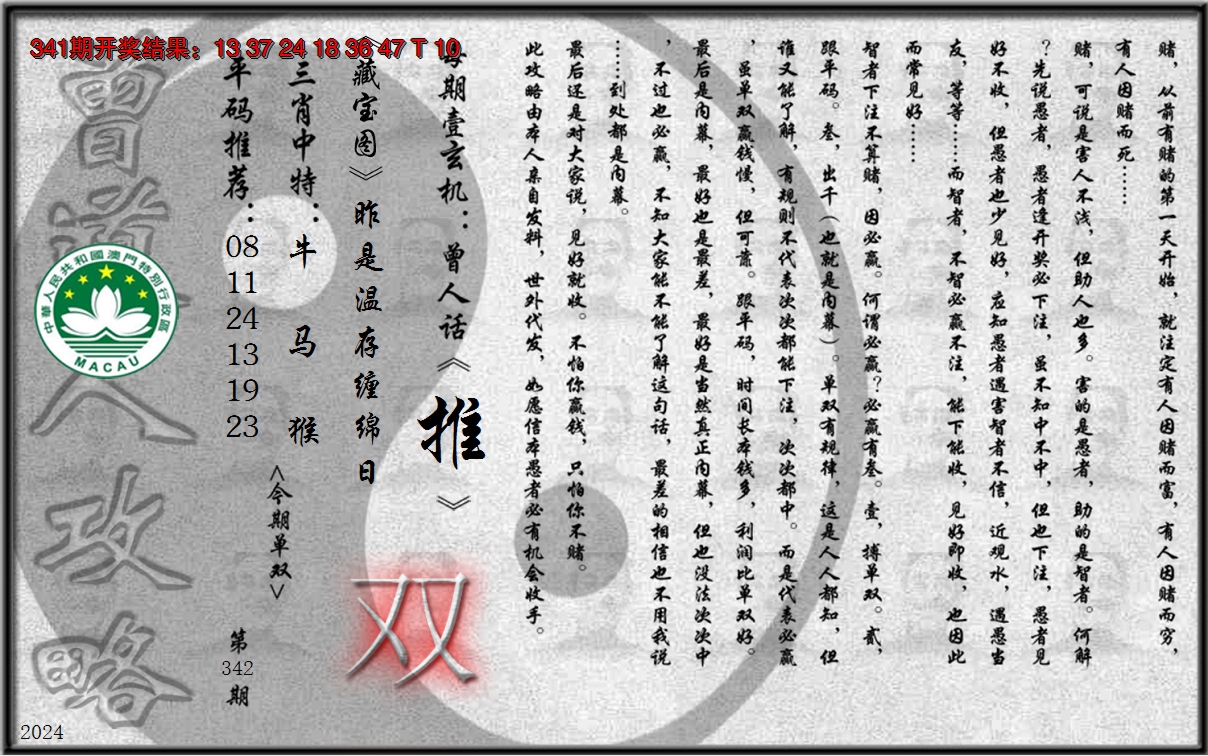 341期开奖结果：13 37 24 18 36 47 T 10
赌，从前有赌的第一天开始，就注定有人因赌而富，有人因赌而穷，
有人因赌而死……
赌，可说是害人不浅，但助人也多。害的是愚者，助的是智者。何解
？先说愚者，愚者逢开奖必下注，虽不知中不中，但也下注，愚者见
好不收，但愚者也少见好，应知愚者遇害智者不信，近观水，遇愚当
友，等等……而智者，不智必赢不注，能下能收，见好即收，也因此
而常见好……
智者下注不算赌，因必赢。何谓必赢？必赢有叁。壹，搏单双。贰，
跟平码。叁，出千（也就是内幕）。单双有规律，这是人人都知，但
谁又能了解，有规则不代表次次都能下注，次次都中。而是代表必赢
，虽单双赢钱慢，但可靠。跟平码，时间长本钱多，利润比单双好。
最后是内幕，最好也是最差，最好是当然真正内幕，但也没法次次中
，不过也必赢，不知大家能不能了解这句话，最差的相信也不用我说
……到处都是内幕。
最后还是对大家说，见好就收。不怕你赢钱，只怕你不赌。
此攻略由本人亲自发料，世外代发，如愿信本愚者必有机会收手。
每期壹玄机：曾人话《推》
《藏宝图》昨是温存缠绵日
双
三肖中特：牛 马 猴
<今期单双>
平码推荐：08 11 24 13 19 23
第342期
曾道人攻略
中華人民共和國澳門特別行政區
MACAU
2024